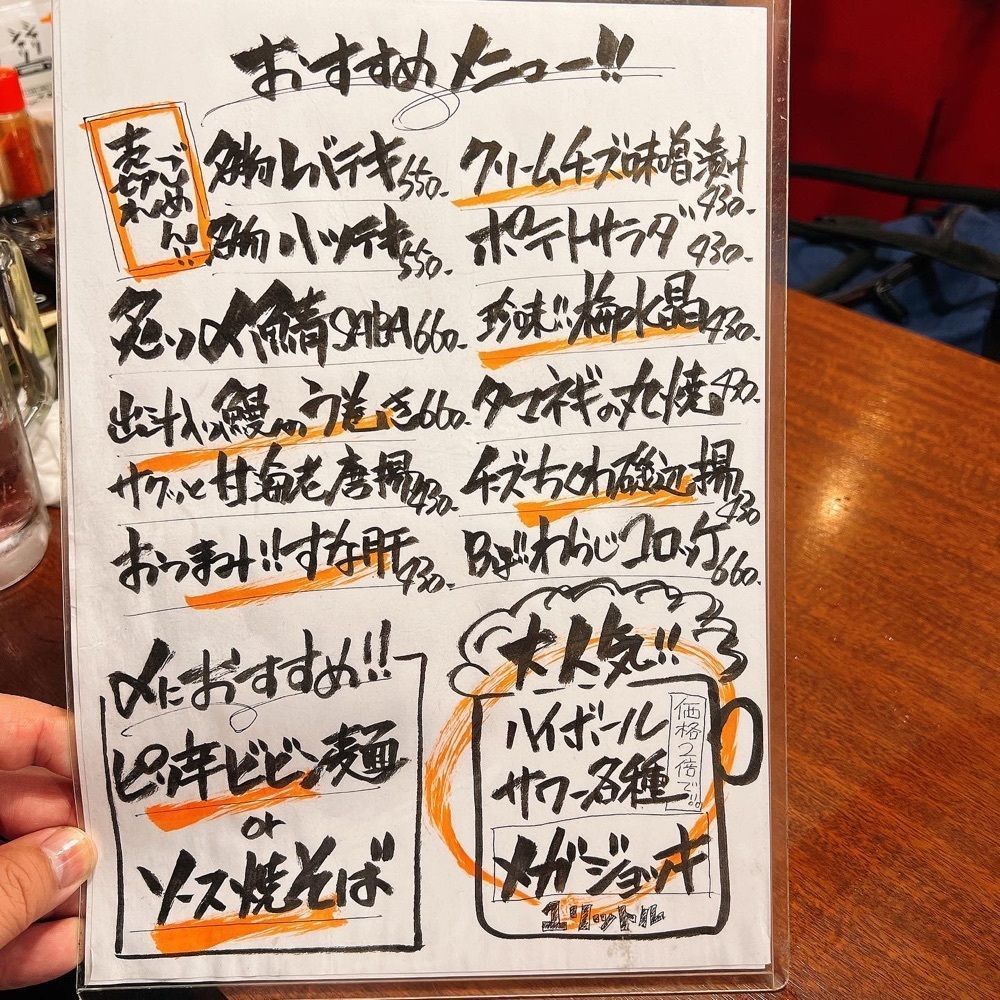 おすすめメニュー!!
売切れ ごめん!!
名物レバテキ 550-
名物ハツテキ 550-
炙り〆鯖SABA 660-
出汁入り鰻のう巻き 660-
サクッと甘海老唐揚 430-
おつまみ!!すな肝 430-
クリームチーズ味噌漬け 430-
ポテトサラダ 430-
珍味!!梅水晶 430-
タマネギの丸焼
チーズちくわ磯辺揚 430
わらじコロッケ 660-
〆におすすめ!!
ピリ辛ビビン麺
or
ソース焼そば
大人気!!
ハイボール
サワー各種
価格2倍で!!
メガジョッキ
1リットル